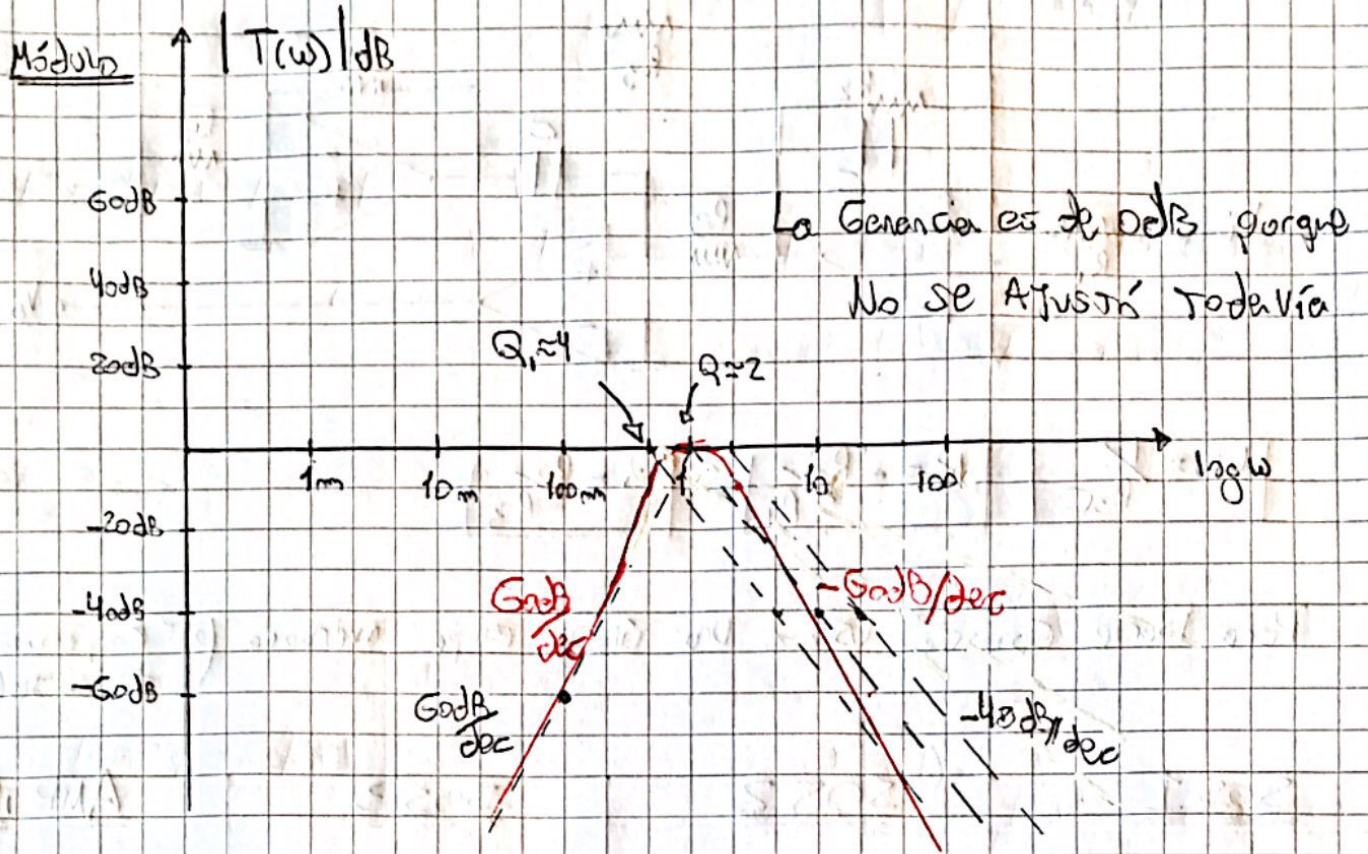 Módulo
|T(ω)|dB
60dB
40dB
20dB
-20dB
-40dB
-60dB
La Ganancia es de 0dB porque
No se Ajustó Todavía
Q₁≈4
Q≈2
1m
10m
100m
1
10
100
log ω
60dB
/dec
-60dB/dec
60dB
/dec
-40dB/dec